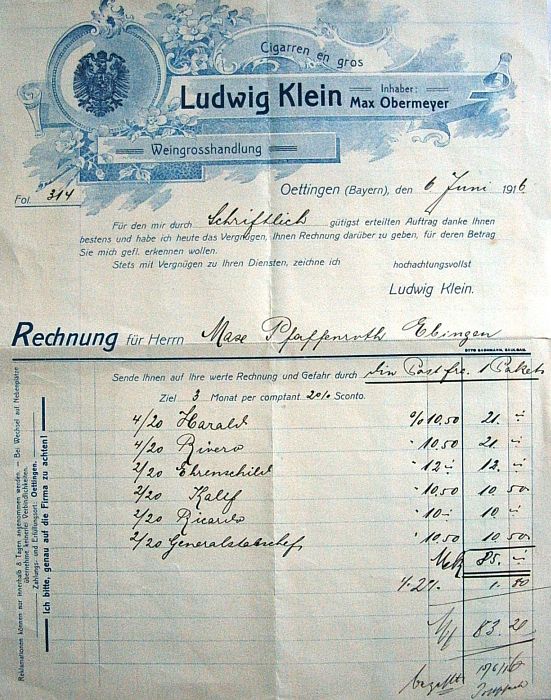 Cigarren en gros
Ludwig Klein Inhaber: Max Obermeyer
Weingrosshandlung
Fol. 314
Oettingen (Bayern), den 6 Juni 1916
Für den mir durch Schriftlich gütigst erteilten Auftrag danke Ihnen
bestens und habe ich heute das Vergnügen, Ihnen Rechnung darüber zu geben, für deren Betrag
Sie mich gefl. erkennen wollen.
Stets mit Vergnügen zu Ihren Diensten, zeichne ich hochachtungsvollst
Ludwig Klein.
Rechnung für Herrn Max Pfaffenroth Ebingen
Sende Ihnen auf Ihre werte Rechnung und Gefahr durch die Post fre. 1 Paket
Ziel 3 Monat per comptant 2% Sconto.
4/20 Harald % 10,50 21. "
4/20 Rivero " 10,50 21. "
2/20 Ehrenschild " 12 " 12. "
2/20 Kalif " 10,50 10,50
2/20 Ricardo " 10 " 10. "
2/20 Generalstabschef " 10,50 10,50
Mk 85. "
/. 2% 1.80
83.20
bezahlt 15/6/16
Reklamationen können nur innerhalb 8 Tagen angenommen werden. — Bei Wechsel auf Nebenplätze
übernehme keinerlei Verbindlichkeiten.
Zahlungs- und Erfüllungsort: Oettingen.
Ich bitte, genau auf die Firma zu achten!